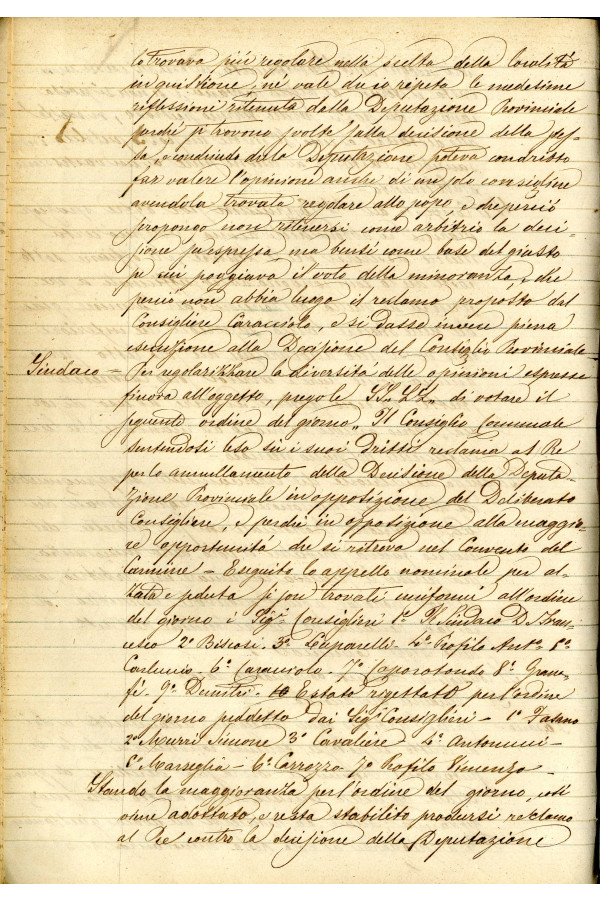 lo trovava più regolare nella scelta della località
in quistione, nè vale du io ripeta le medesime
riflessioni ritenuta dalla Deputazione Provinciale
perchè si trovono svolte sulla decisione della stes-
sa, e la Deputazione poteva
far valere l'opinione anche di un solo consigliere
avendola trovata regolare allo scopo, e che perciò
propongo non ritenersi come arbitrio la deci-
sione suespressa, ma bensì come base del giusto
se sui poggiava il voto della minoranza, e che
perciò non abbia luogo il reclamo proposto dal
Consigliere Caracciolo, e si dasse invece piena
esecuzione alla Decisione del Consiglio Provinciale -
Sindaco = Per regolarizzare la diversità delle opinioni espresse
finora all'oggetto, prego le SS. LL. di votare il
seguente ordine del giorno „ Il Consiglio Comunale
sentendosi leso su i suoi dritti reclama al Re
per lo annullamento della Decisione della Deputa-
zione Provinciale in opposizione del Deliberato
Consigliere, e perchè in opposizione alla maggio-
re opportunità che si ritrova nel Convento del
Carmine - Eseguito lo appello nominale per al-
zata e seduta si son trovati uniformi all'ordine
del giorno i Sigi Consiglieri 1º Il Sindaco D. Fran-
cesco 2º Biscosi. 3º Leparelli - 4º Profilo Antº 5º
Carluccio - 6º Caracciolo - 7º Caporotondo 8º Grana-
fé. 9º Demitri - Estato rigettato per l'ordine
del giorno suddetto dai Sigi Consiglieri - 1º Fasano
2º Murri Simone 3º Cavaliere 4º Antonucci -
5º Marseglia - 6º Carrozzo 7º Profilo Vincenzo -
Stando la maggioranza per l'ordine del giorno, così
viene adottato, e resta stabilito prodursi reclamo
al Re contro la decisione della Deputazione